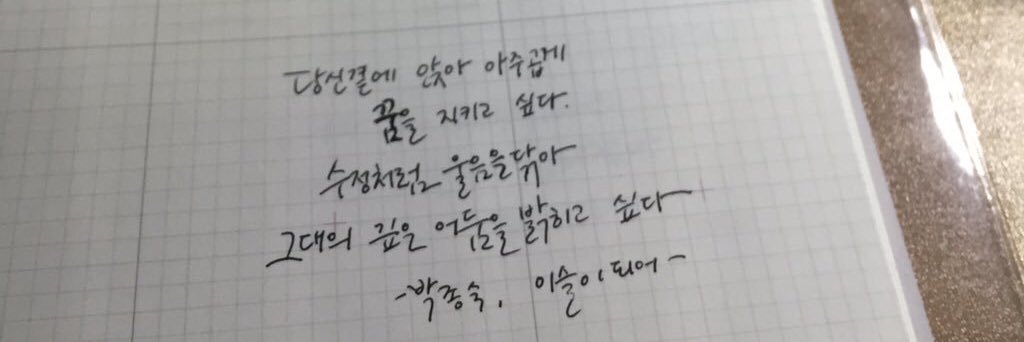 당신곁에 앉아 아주곱게
꿈을 지키고 싶다.
수정처럼 울음을닦아
그대의 깊은 어둠을 밝히고 싶다
-박종숙, 이슬이되어-